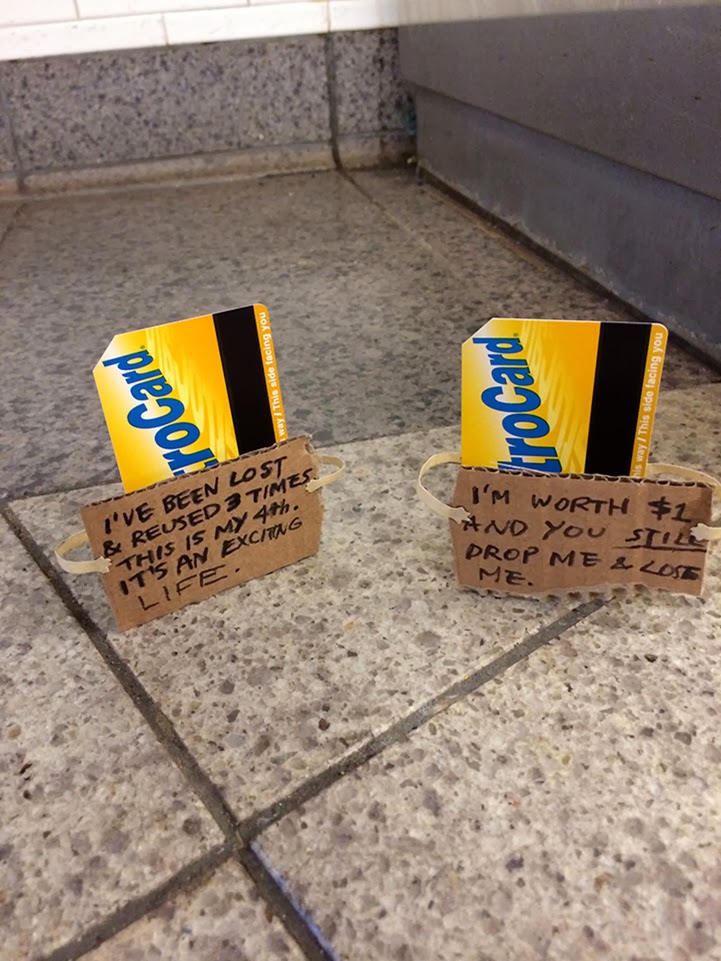 troCard
way / This side facing you
I'VE BEEN LOST
& REUSED 3 TIMES
THIS IS MY 4th.
IT'S AN EXCITING
LIFE.
troCard
his way / This side facing you
I'M WORTH $1
AND YOU STILL
DROP ME & LOSE
ME.